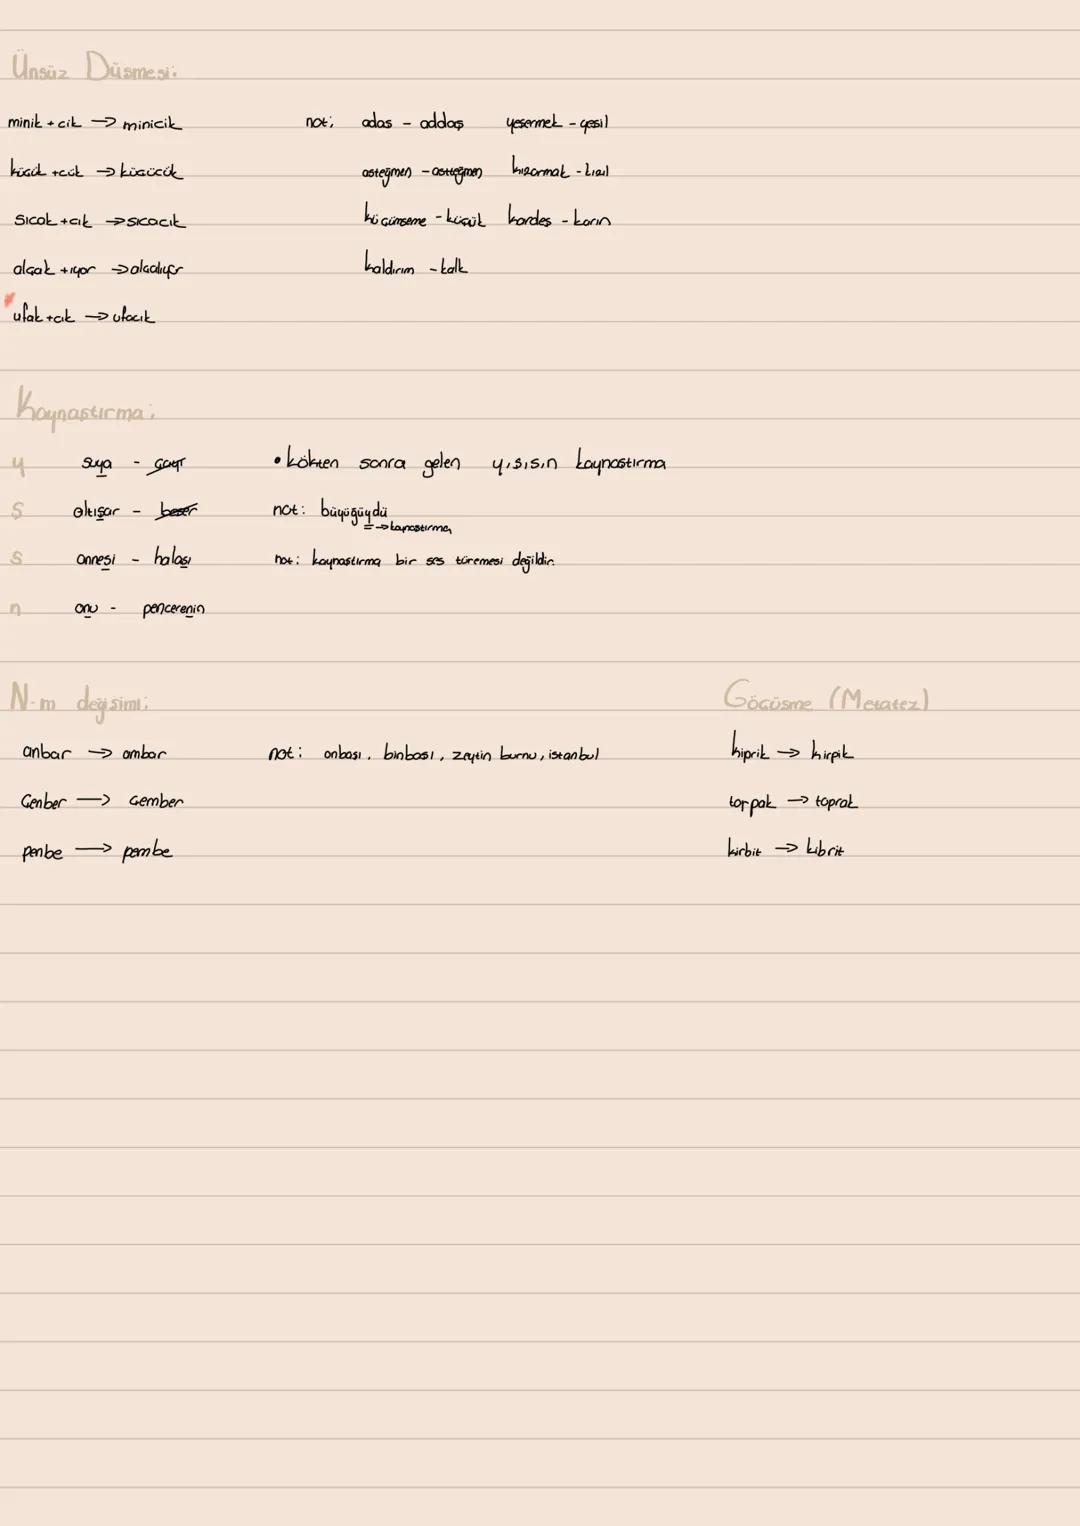 Ünsüz Düşmesi:
minik + cik → minicik
küçük + cük → küçücük
sıcak + cık → sıcacık
alçak + ıyor → alçalıyor
*ufak + cık → ufacık
not: adaş - addaş yeşermek - yeşil
asteğmen - astteğmen kızarmak - kızıl
küçümseme - küçük kardeş - karın
kaldırım - kalk
Kaynaştırma:
y suya - çayır
ş altışar - beşer
s annesi - halası
n onu - pencerenin
• kökten sonra gelen y,ş,s,n kaynaştırma
not: büyüğüydü
→ kaynaştırma
not: kaynaştırma bir ses türemesi değildir.
N-m değişimi:
anbar → ambar
Çenber → çember
penbe → pembe
not: onbaşı, binbaşı, zeytin burnu, istanbul
Göçüşme (Metatez)
kiprik → kirpik
torpak → toprak
kirbit → kibrit